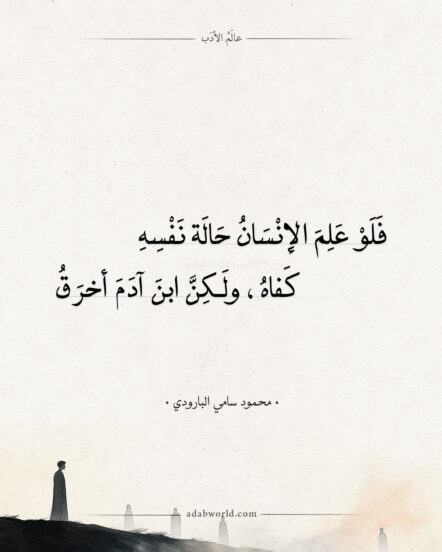 عالَمُ الأدَب
فَلَوْ عَلِمَ الإنْسَانُ حَالَة نَفْسِهِ
كَفاهُ ، ولَـكِنَّ ابنَ آدَمَ أخرَقُ
• محمود سامي البارودي •
adabworld.com